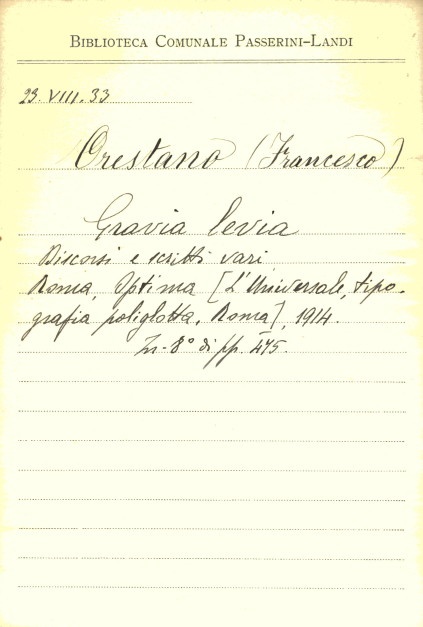 BIBLIOTECA COMUNALE PASSERINI-LANDI
23.VIII.33
Orestano (Francesco)
Gravia levia
Discorsi e scritti vari
Roma, Optima [L'Universale, tipo-
grafia poliglotta, Roma], 1914.
In-8° di pp. 475.